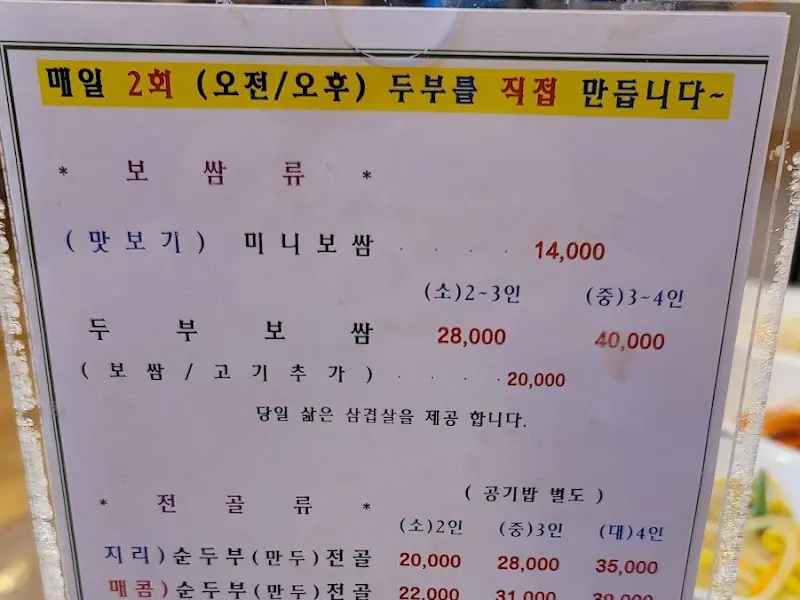 매일 2회 (오전/오후) 두부를 직접 만듭니다~
* 보 쌈 류 *
(맛보기) 미니보쌈 . . . . 14,000
(소)2~3인 (중)3~4인
두 부 보 쌈 28,000 40,000
(보쌈/고기추가) . . . . 20,000
당일 삶은 삼겹살을 제공 합니다.
( 공기밥 별도 )
* 전 골 류 *
(소)2인 (중)3인 (대)4인
지리)순두부(만두)전골 20,000 28,000 35,000
매콤)순두부(만두)전골 22,000 31,000 39,000